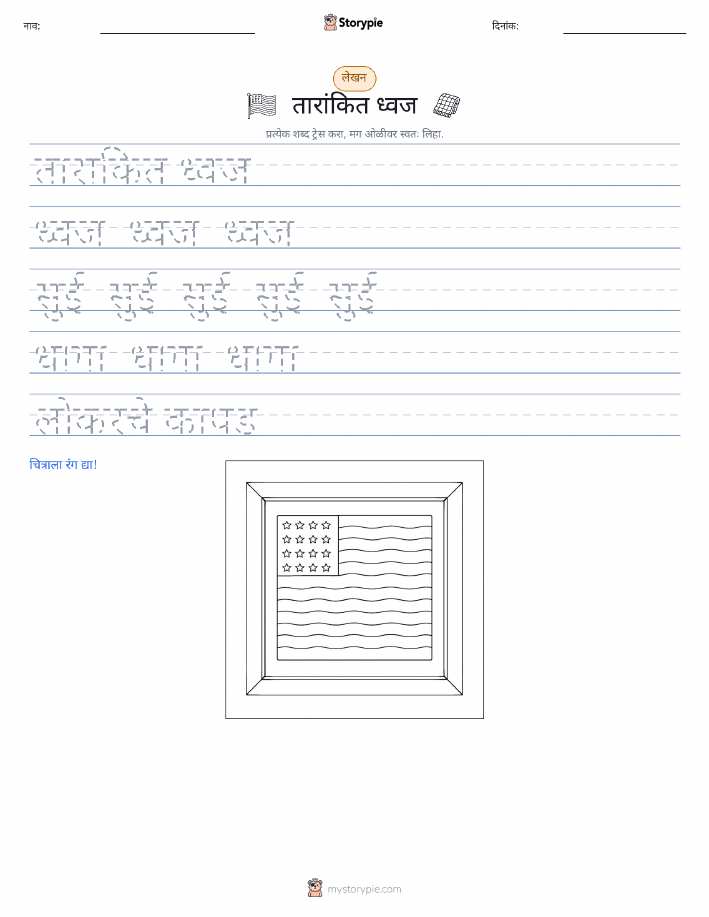 नाव:
Storypie
दिनांक:
लेखन
तारांकित ध्वज
प्रत्येक शब्द ट्रेस करा, मग ओळीवर स्वतः लिहा.
तारांकित ध्वज
ध्वज ध्वज ध्वज
सुई सुई सुई सुई सुई
धागा धागा धागा
लोकरचे कापड
चित्राला रंग द्या!
mystorypie.com